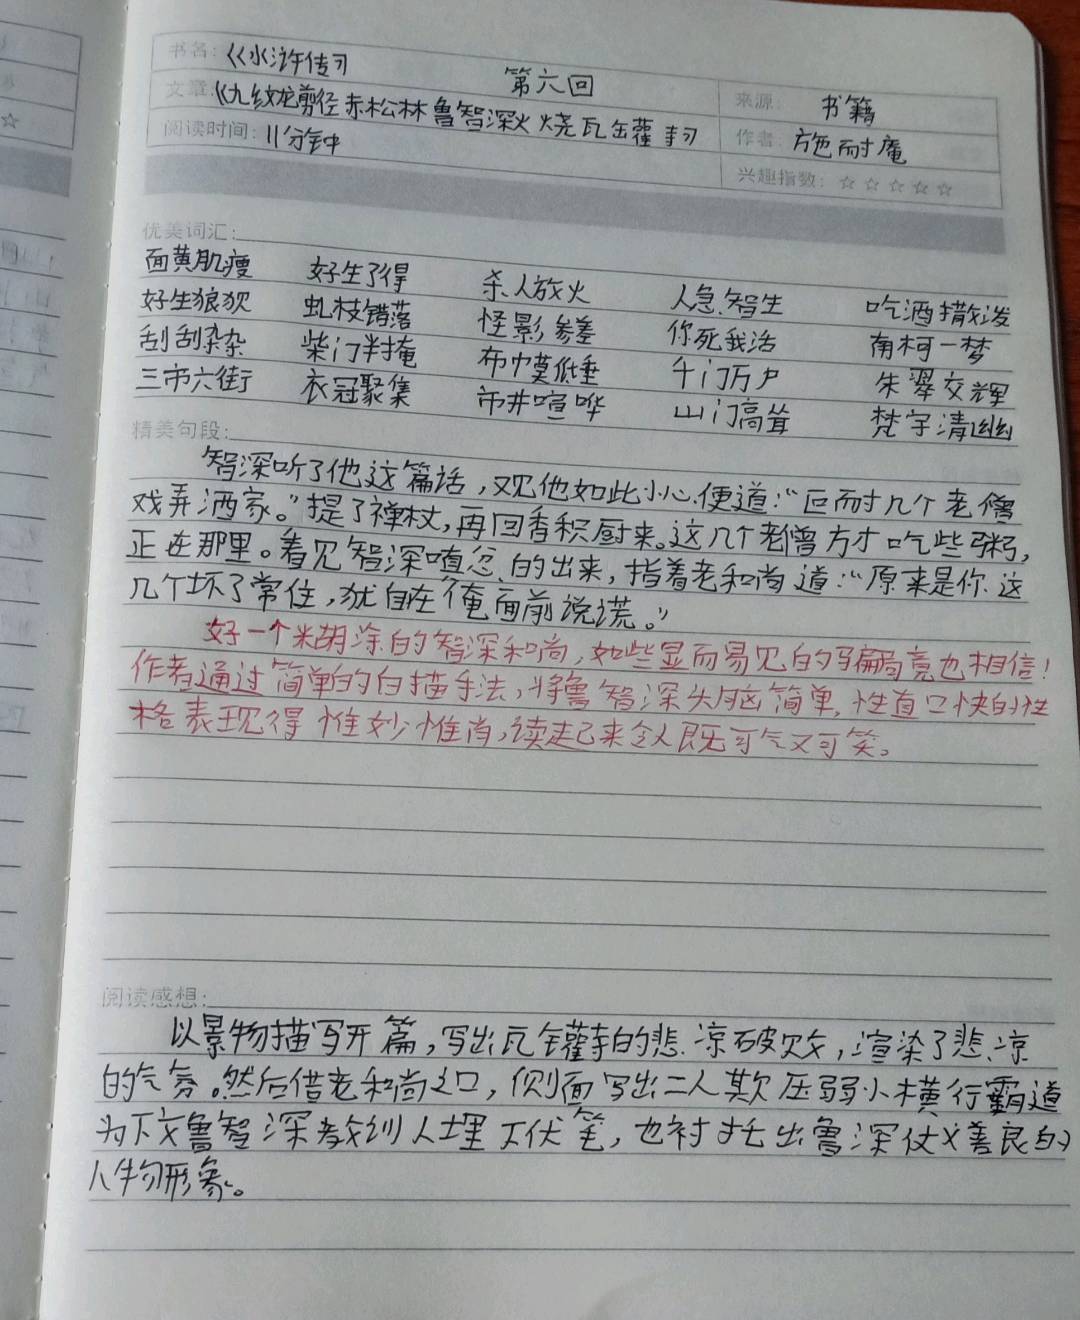 书名：《水浒传》
第六回
文章：《九纹龙剪径赤松林 鲁智深火烧瓦罐寺》
来源：书籍
阅读时间：11分钟
作者：施耐庵
兴趣指数：☆☆☆☆☆
优美词汇：
面黄肌瘦 好生了得 杀人放火 人急智生 吃酒撒泼
好生狼狈 虬枝错落 怪影参差 你死我活 南柯一梦
刮刮杂杂 柴门半掩 布幕低垂 千门万户 朱翠交辉
三市六街 衣冠聚集 市井喧哗 山门高耸 梵宇清幽
精美句段：
智深听了他这篇话，又见他如此小心，便道：“叵耐几个老僧
戏弄洒家。”提了禅杖，再回香积厨来。这几个老僧方才吃些粥，
正在那里。看见智深嗔忿的出来，指着老和尚道：“原来是你这
几个坏了常住，犹自在俺面前说谎。”
好一个糊涂的智深和尚，如些显而易见的骗局竟也相信！
作者通过简单的白描手法，将鲁智深头脑简单，性直口快的性
格表现得惟妙惟肖，读起来令人既可气又可笑。
阅读感想：
以景物描写开篇，写出瓦罐寺的悲凉破败，渲染了悲凉
的气氛。然后借老和尚之口，侧面写出二人欺压弱小横行霸道
为下文鲁智深教训人埋下伏笔，也衬托出鲁深仗义善良的
人物形象。